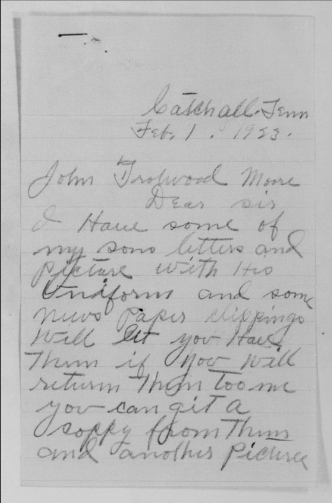 Catchall-Tenn
Feb. 1. 1923.
John Trotwood Moore
Dear sir
I Have some of
my sons letters and
Picture with His
Uniform and some
News Paper clippings
Will let you Have
Them if you Will
return Them too me
you can git a
coppy from Them
and another Picture